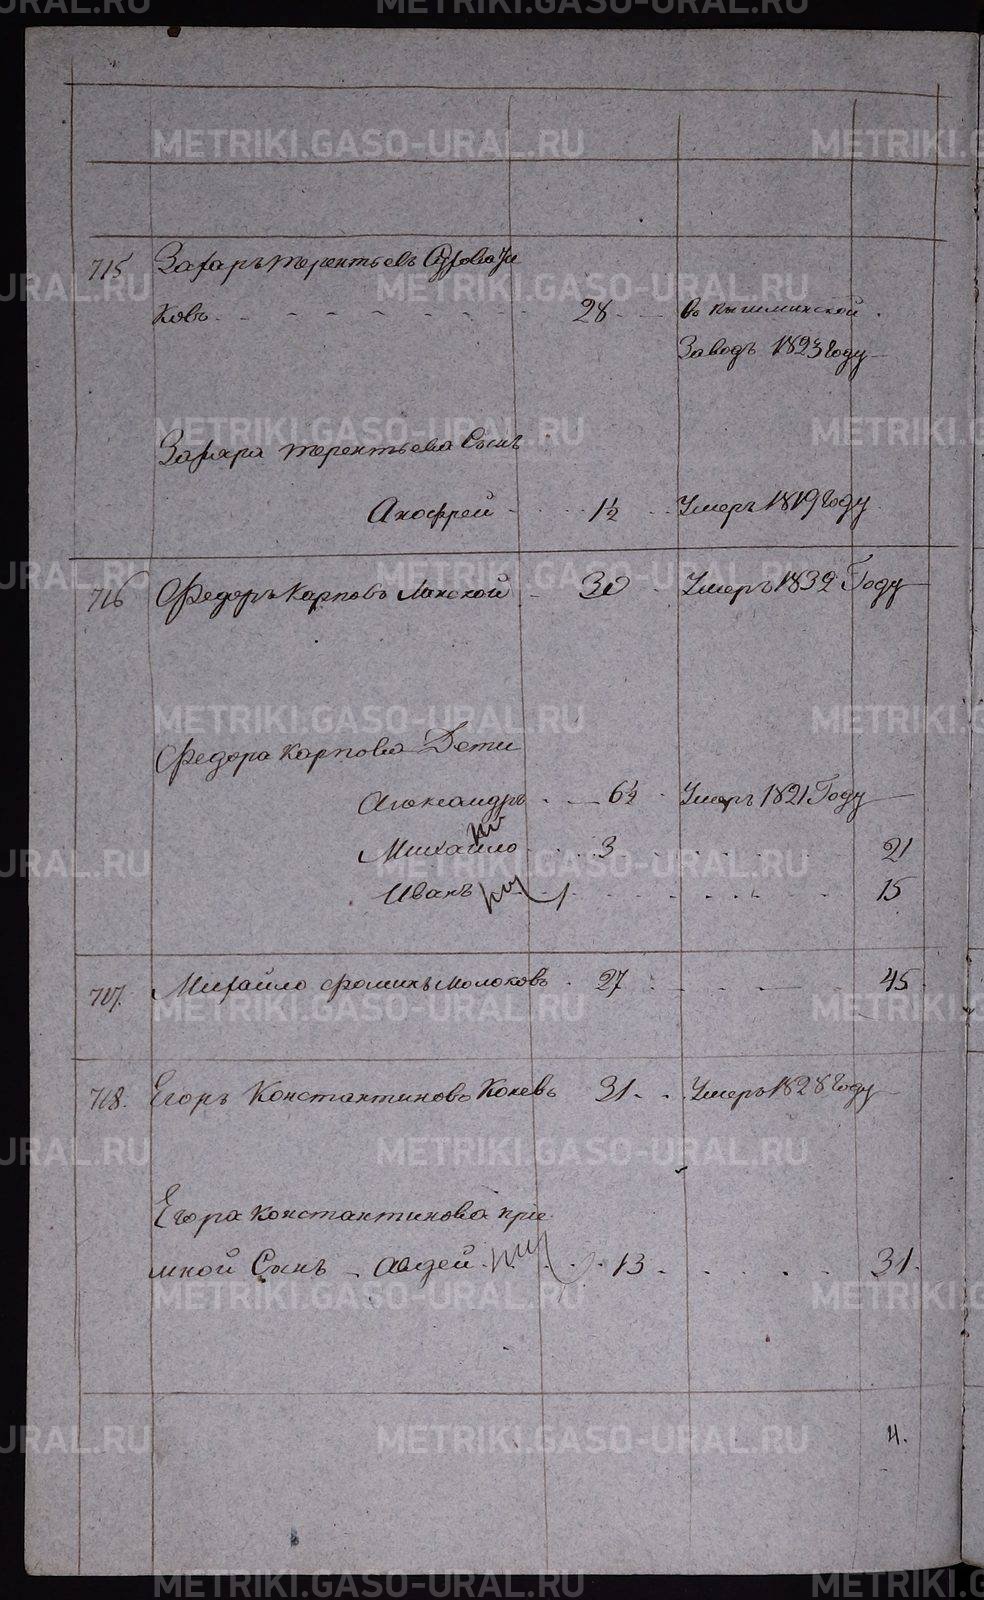 METRIKI.GASO-URAL.RU
715 Захаръ терентьевъ
ковъ 28 в пышминской
Заводъ 1823 году
Захара терентьева Сынъ
Анофрей 1½ Умеръ 1819 году
716 Федоръ Карповъ 30 Умеръ 1832 Году
Федора Карпова Дети
Александръ 6½ Умеръ 1821 Году
Михайло 3 21
Иванъ 1 15
717. Михайло Фоминъ Молоковъ 27 45
718. Егоръ Константиновъ Коневъ 31 Умеръ 1828 году
Егора Константинова прие
мной Сынъ Авдей 13 31.
4.